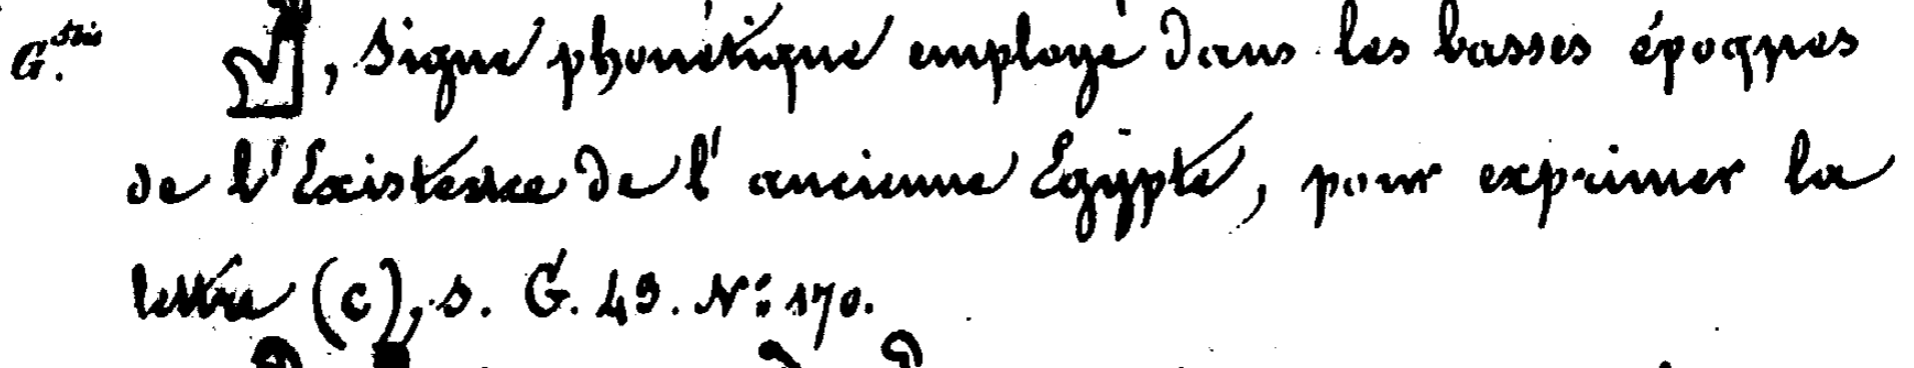 G. , signe phonétique employé dans les basses époques
de l'Existence de l'ancienne Egypte, pour exprimer la
lettre (c), s. G. 49. N: 170.